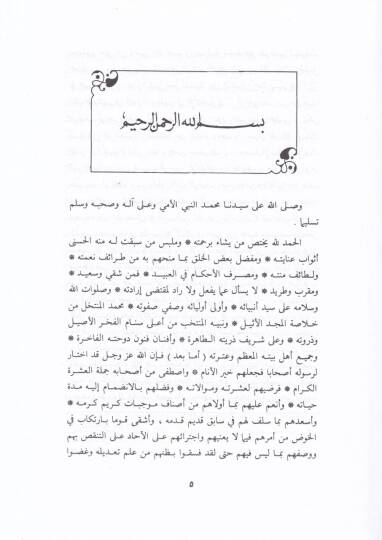 بسم الله الرحمن الرحيم
وصلى الله على سيدنا محمد النبي الأمي وعلى آله وصحبه وسلم
تسليما .
الحمد لله يختص من يشاء برحمته * وملبس من سبقت له منه الحسنى
أثواب عنايته * ومفضل بعض الخلق بما منحهم به من طرائف نعمته *
ولطائف منته * ومصرف الأحكام في العبيد * فمن شقي وسعيد *
ومقرب وطريد * لا يسأل عما يفعل ولا راد لمقتضى إرادته * وصلوات الله
وسلامه على سيد أنبيائه * وأولى أوليائه وصفي صفوته * محمد المنتخل من
خلاصة المجد الأثيل * ونبيه المنتخب من أعلى سنام الفخر الأصيل
وذروته * وعلى شريف ذريته الطاهرة * وأفنان فنون دوحته الفاخرة *
وجميع أهل بيته المعظم وعترته ( أما بعد ) فإن الله عز وجل قد اختار
لرسوله أصحابا فجعلهم خير الأنام * واصطفى من أصحابه جملة العشرة
الكرام * فرضيهم لعشرته وموالاته * وفضلهم بالانضمام إليه مدة
حياته * وأنعم عليهم بما أولاهم من أصناف موجبات كريم كرمه *
وأسعدهم بما سلف لهم في سابق قديم قدمه ، وأشقى قوما بارتكاب في
الخوض من أمرهم فيما لا يعنيهم واجترائهم على الآحاد على التنقص بهم
ووصفهم بما ليس فيهم حتى لقد فسقوا بظنهم من علم تعديله وغضوا
٥